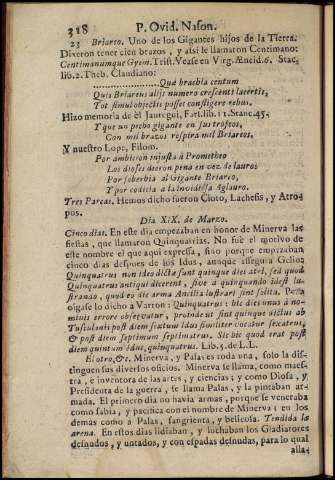 318 P. Ovid. Nason.
23 Briareo. Uno de los Gigantes hijos de la Tierra.
Dixeron tener cien brazos, y assi le llamaron Centimano:
Centimanumque Gyem. Trist. Vease en Virg. Æneid. 6. Stac.
lib. 2. Theb. Claudiano:
Quá brachia centum
Quis Briareus aliis numero crescente lacertis,
Tot simul objectis posset confligere rebus.
Hizo memoria de él Jauregui, Farf. lib. 12. Stanc. 45.
Y que un pecho gigante en sus troféos,
Con mil brazos respira mil Briareos.
Y nuestro Lope, Filom.
Por ambicion injusta á Prometheo
Los dioses dieron pena en vez de lauro:
Por soberbia al Gigante Briareo,
Y por codicia a la invidiosa Aglauro.
Tres Parcas. Hemos dicho fueron Cloto, Lachesis, y Atro-
pos.
Dia XIX. de Marzo.
Cinco dias. En este dia empezaban en honor de Minerva las
fiestas, que llamaron Quinquatrias. No fue el motivo de
este nombre el que aqui expressa, sino porque empezaban
cinco dias despues de los Idus, aunque assegura Gelio:
Quinquatrus non ideo dicta sunt quinque dies atri, sed quod
Quinquatrus antiqui dicerent, sive a quinquando idest lu-
strando, quod eo die arma Ancilia lustrari sint solita. Pero
oigase lo dicho á Varron: Quinquatrus: hic dies unus á no-
minis errore observatur, proinde ut sint quinque dictus ab
Tusculanis post diem sextum Idus similiter vocatur sexatrus,
& post diem septimum septimatrus. Sic hic quod erat post
diem quintum Idus, quinquatrus. Lib. 5. de L. L.
El otro, &c. Minerva, y Palas es toda una, solo la dis-
tinguen sus diversos oficios. Minerva se llama, como maes-
tra, é inventora de las artes, y ciencias; y como Diosa, y
Presidenta de la guerra, se llama Palas, y la pintaban ar-
mada. El primero dia no havia armas, porque se veneraba
como sabia, y pacifica con el nombre de Minerva: en los
demás como a Palas, sangrienta, y belicosa. Tendida la
arena. En estos dias lidiaban, y luchaban los Gladiatores
desnudos, y untados, y con espadas desnudas, para lo qual
alla-